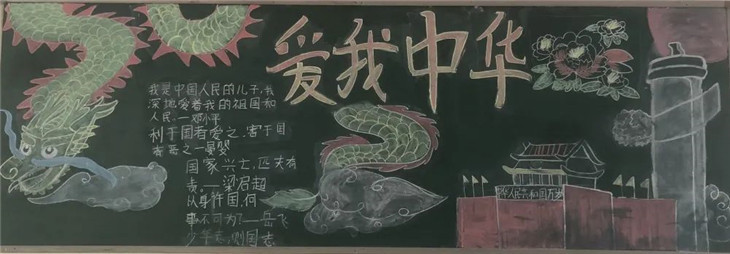 爱我中华
我是中国人民的儿子,我
深地爱着我的祖国和
人民,一邓小平
利于国者爱之,害于国
者恶之一晏婴
国家兴亡,匹夫有
责。一梁启超
以身许国,何
事不可为?一岳飞
少年志,则国志
中华人民共和国万岁